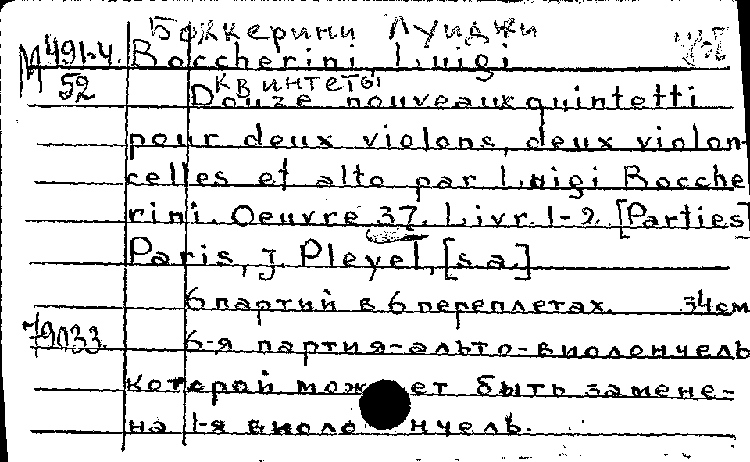 Боккерини Луиджи
М 491-4. Boccherini, Luigi
52 Квинтеты
Douze nouveaux quintetti
pour deux violons, deux violon-
celles et alto par Luigi Bocche
rini. Oeuvre 37. Livr. 1-2. [Parties]
Paris, J. Pleyel, [s.a.]
6 партий в 6 переплетах. 34 см
79033. 6-я партия-альто-виолончель
которой может быть замене-
на 1-я виолончель.